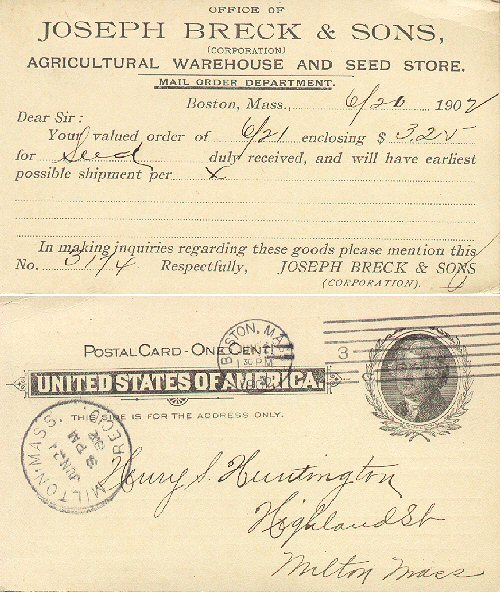 OFFICE OF
JOSEPH BRECK & SONS,
(CORPORATION)
AGRICULTURAL WAREHOUSE AND SEED STORE.
MAIL ORDER DEPARTMENT.
Boston, Mass., 6/20 1902
Dear Sir:
Your valued order of 6/21 enclosing $ 3.25
for Seed duly received, and will have earliest
possible shipment per X
In making inquiries regarding these goods please mention this
No. 3174 Respectfully, JOSEPH BRECK & SONS
(CORPORATION).
BOSTON, MASS.
130PM
3
POSTAL CARD - ONE CENT.
UNITED STATES OF AMERICA.
THIS SIDE IS FOR THE ADDRESS ONLY.
MILTON, MASS. REC'D
JUN 21
PM
Henry S Huntington
Highland St
Milton Mass